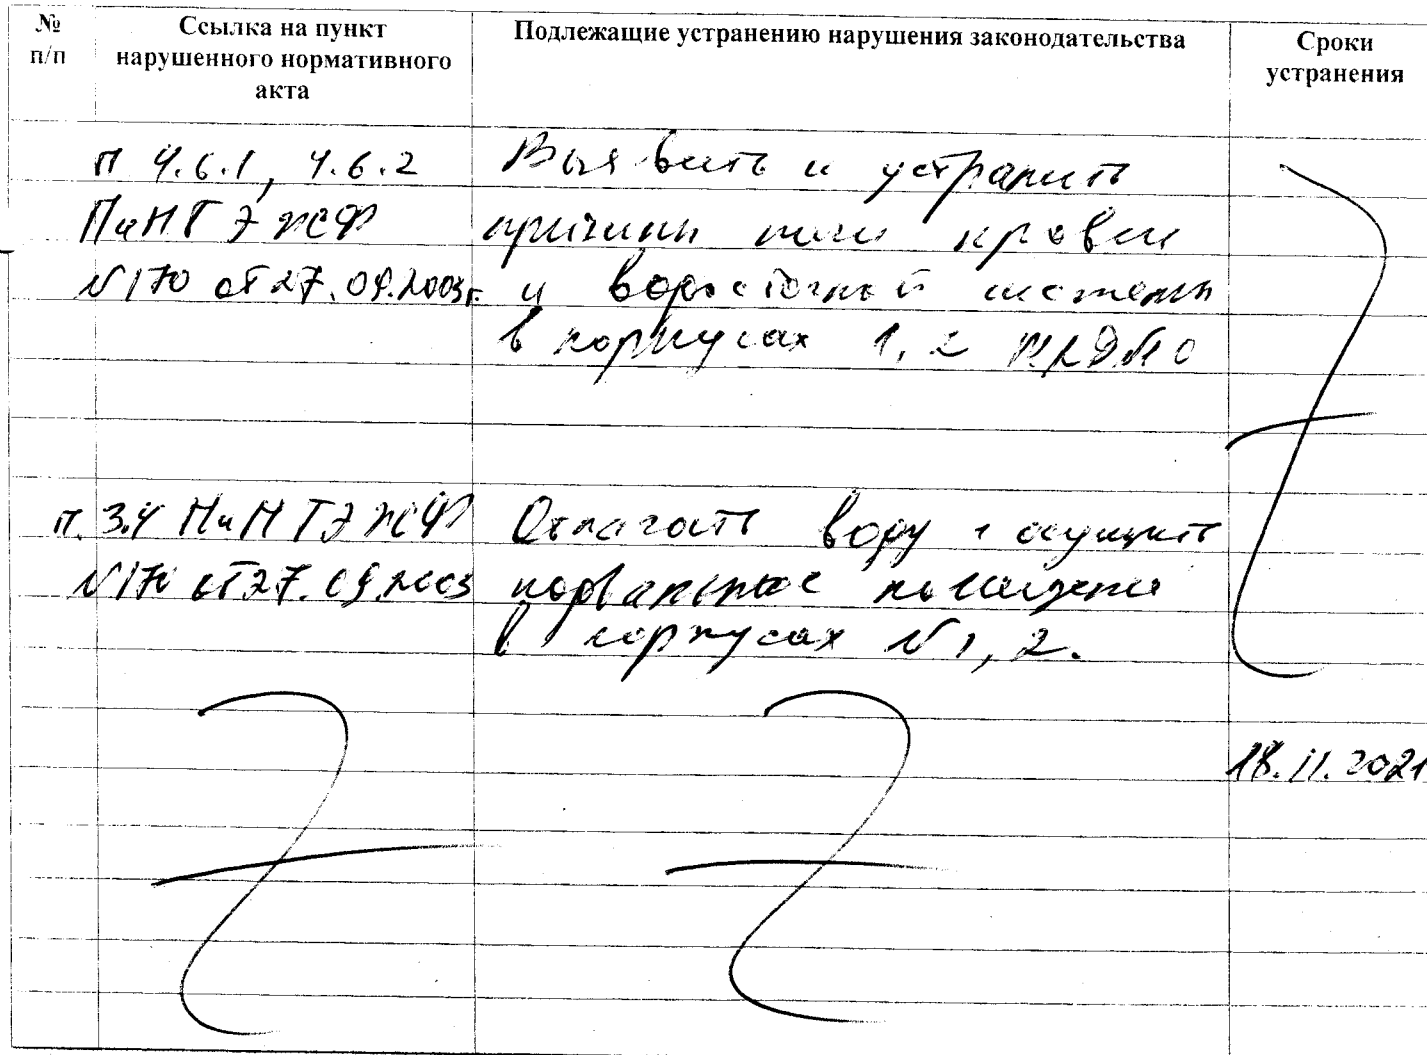 № п/п
Ссылка на пункт
нарушенного нормативного
акта
Подлежащие устранению нарушения законодательства
Сроки
устранения
п 4.6.1, 4.6.2
ПиНТЭЖФ
№170 от 27.09.2003г.
Выявить и устранить
причины течи кровли
и водосточной системы
в корпусах 1, 2
п. 3.4 ПиНТЭЖФ
№170 от 27.09.2003
Откачать воду и осушить
подвальные помещения
в корпусах №1, 2.
18.11.2021